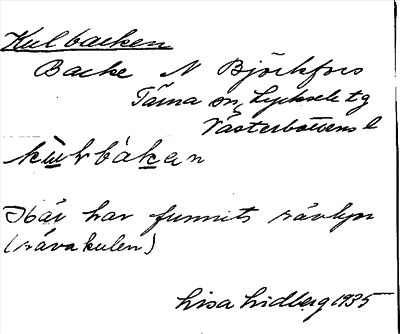 Kulbacken
Backe N Björkfors
Tärna sn, Lycksele tg
Västerbottens l
kulbákan
Här har funnits rävlyn
(rävakulen)
Lisa Lidberg 1935